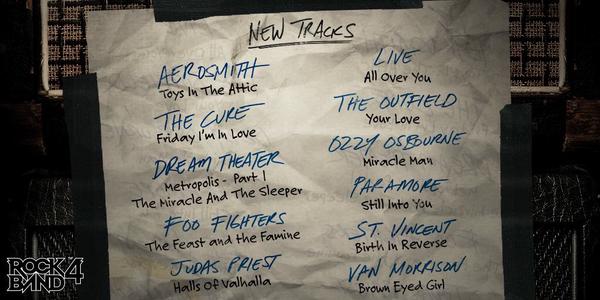 NEW TRACKS
AEROSMITH
Toys In The Attic
THE CURE
Friday I'm In Love
DREAM THEATER
Metropolis - Part 1
The Miracle And The Sleeper
FOO FIGHTERS
The Feast and the Famine
JUDAS PRIEST
Halls Of Valhalla
LIVE
All Over You
THE OUTFIELD
Your Love
OZZY OSBOURNE
Miracle Man
PARAMORE
Still Into You
ST. VINCENT
Birth In Reverse
VAN MORRISON
Brown Eyed Girl
ROCK
BAND 4